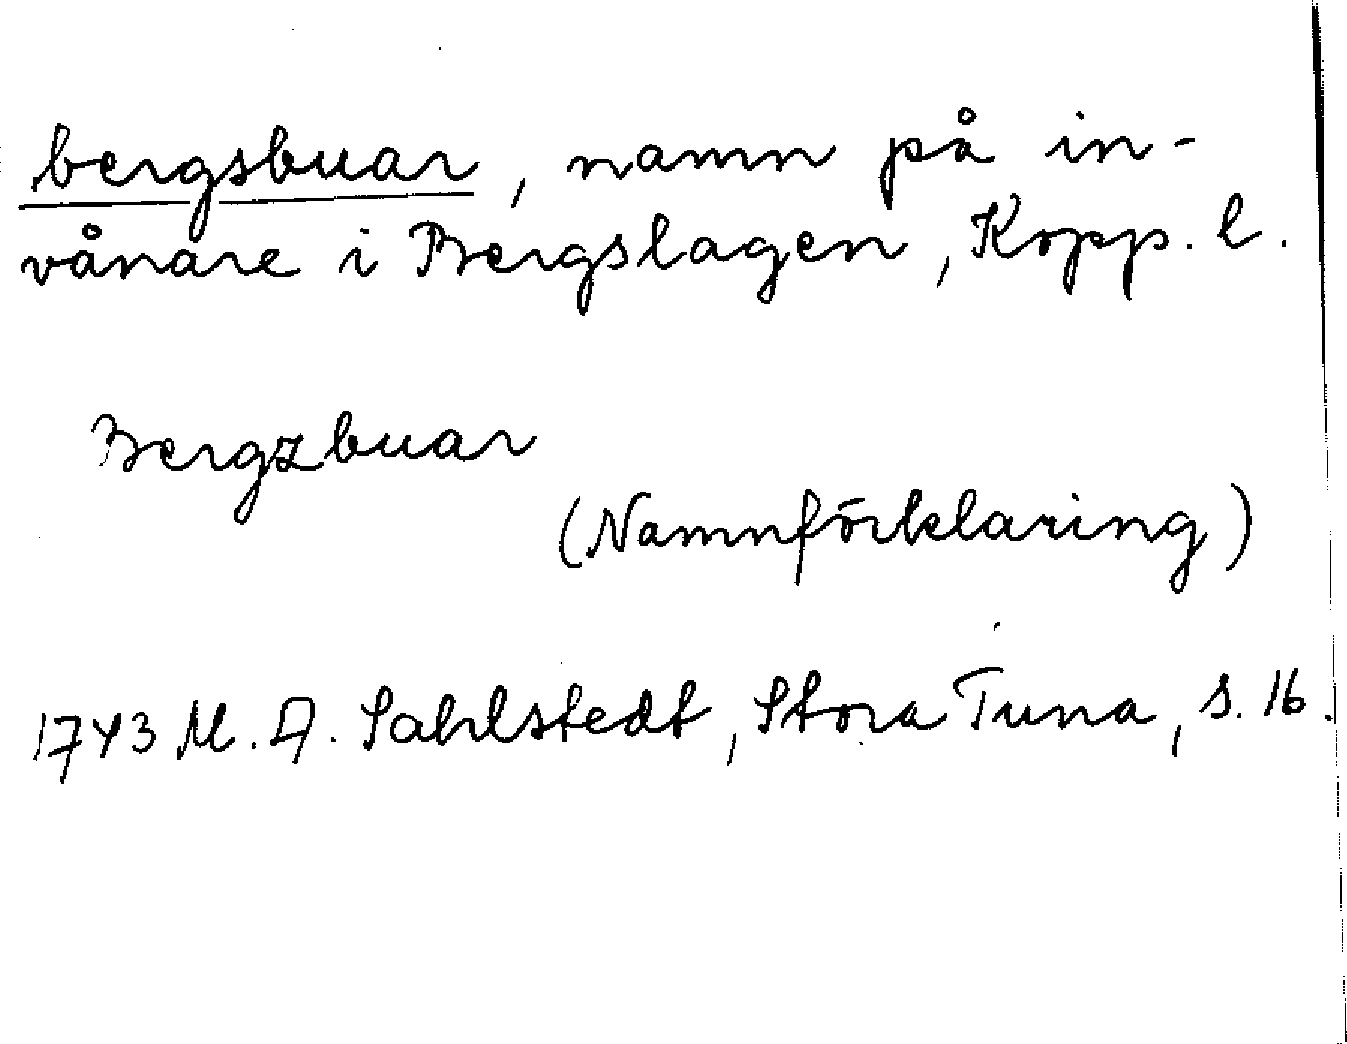 bergsbuar, namn på in-
vånare i Bergslagen, Kopp. l.
Bergzbuar
(Namnförklaring)
1743 M. A. Sahlstedt, Stora Tuna, s. 16.